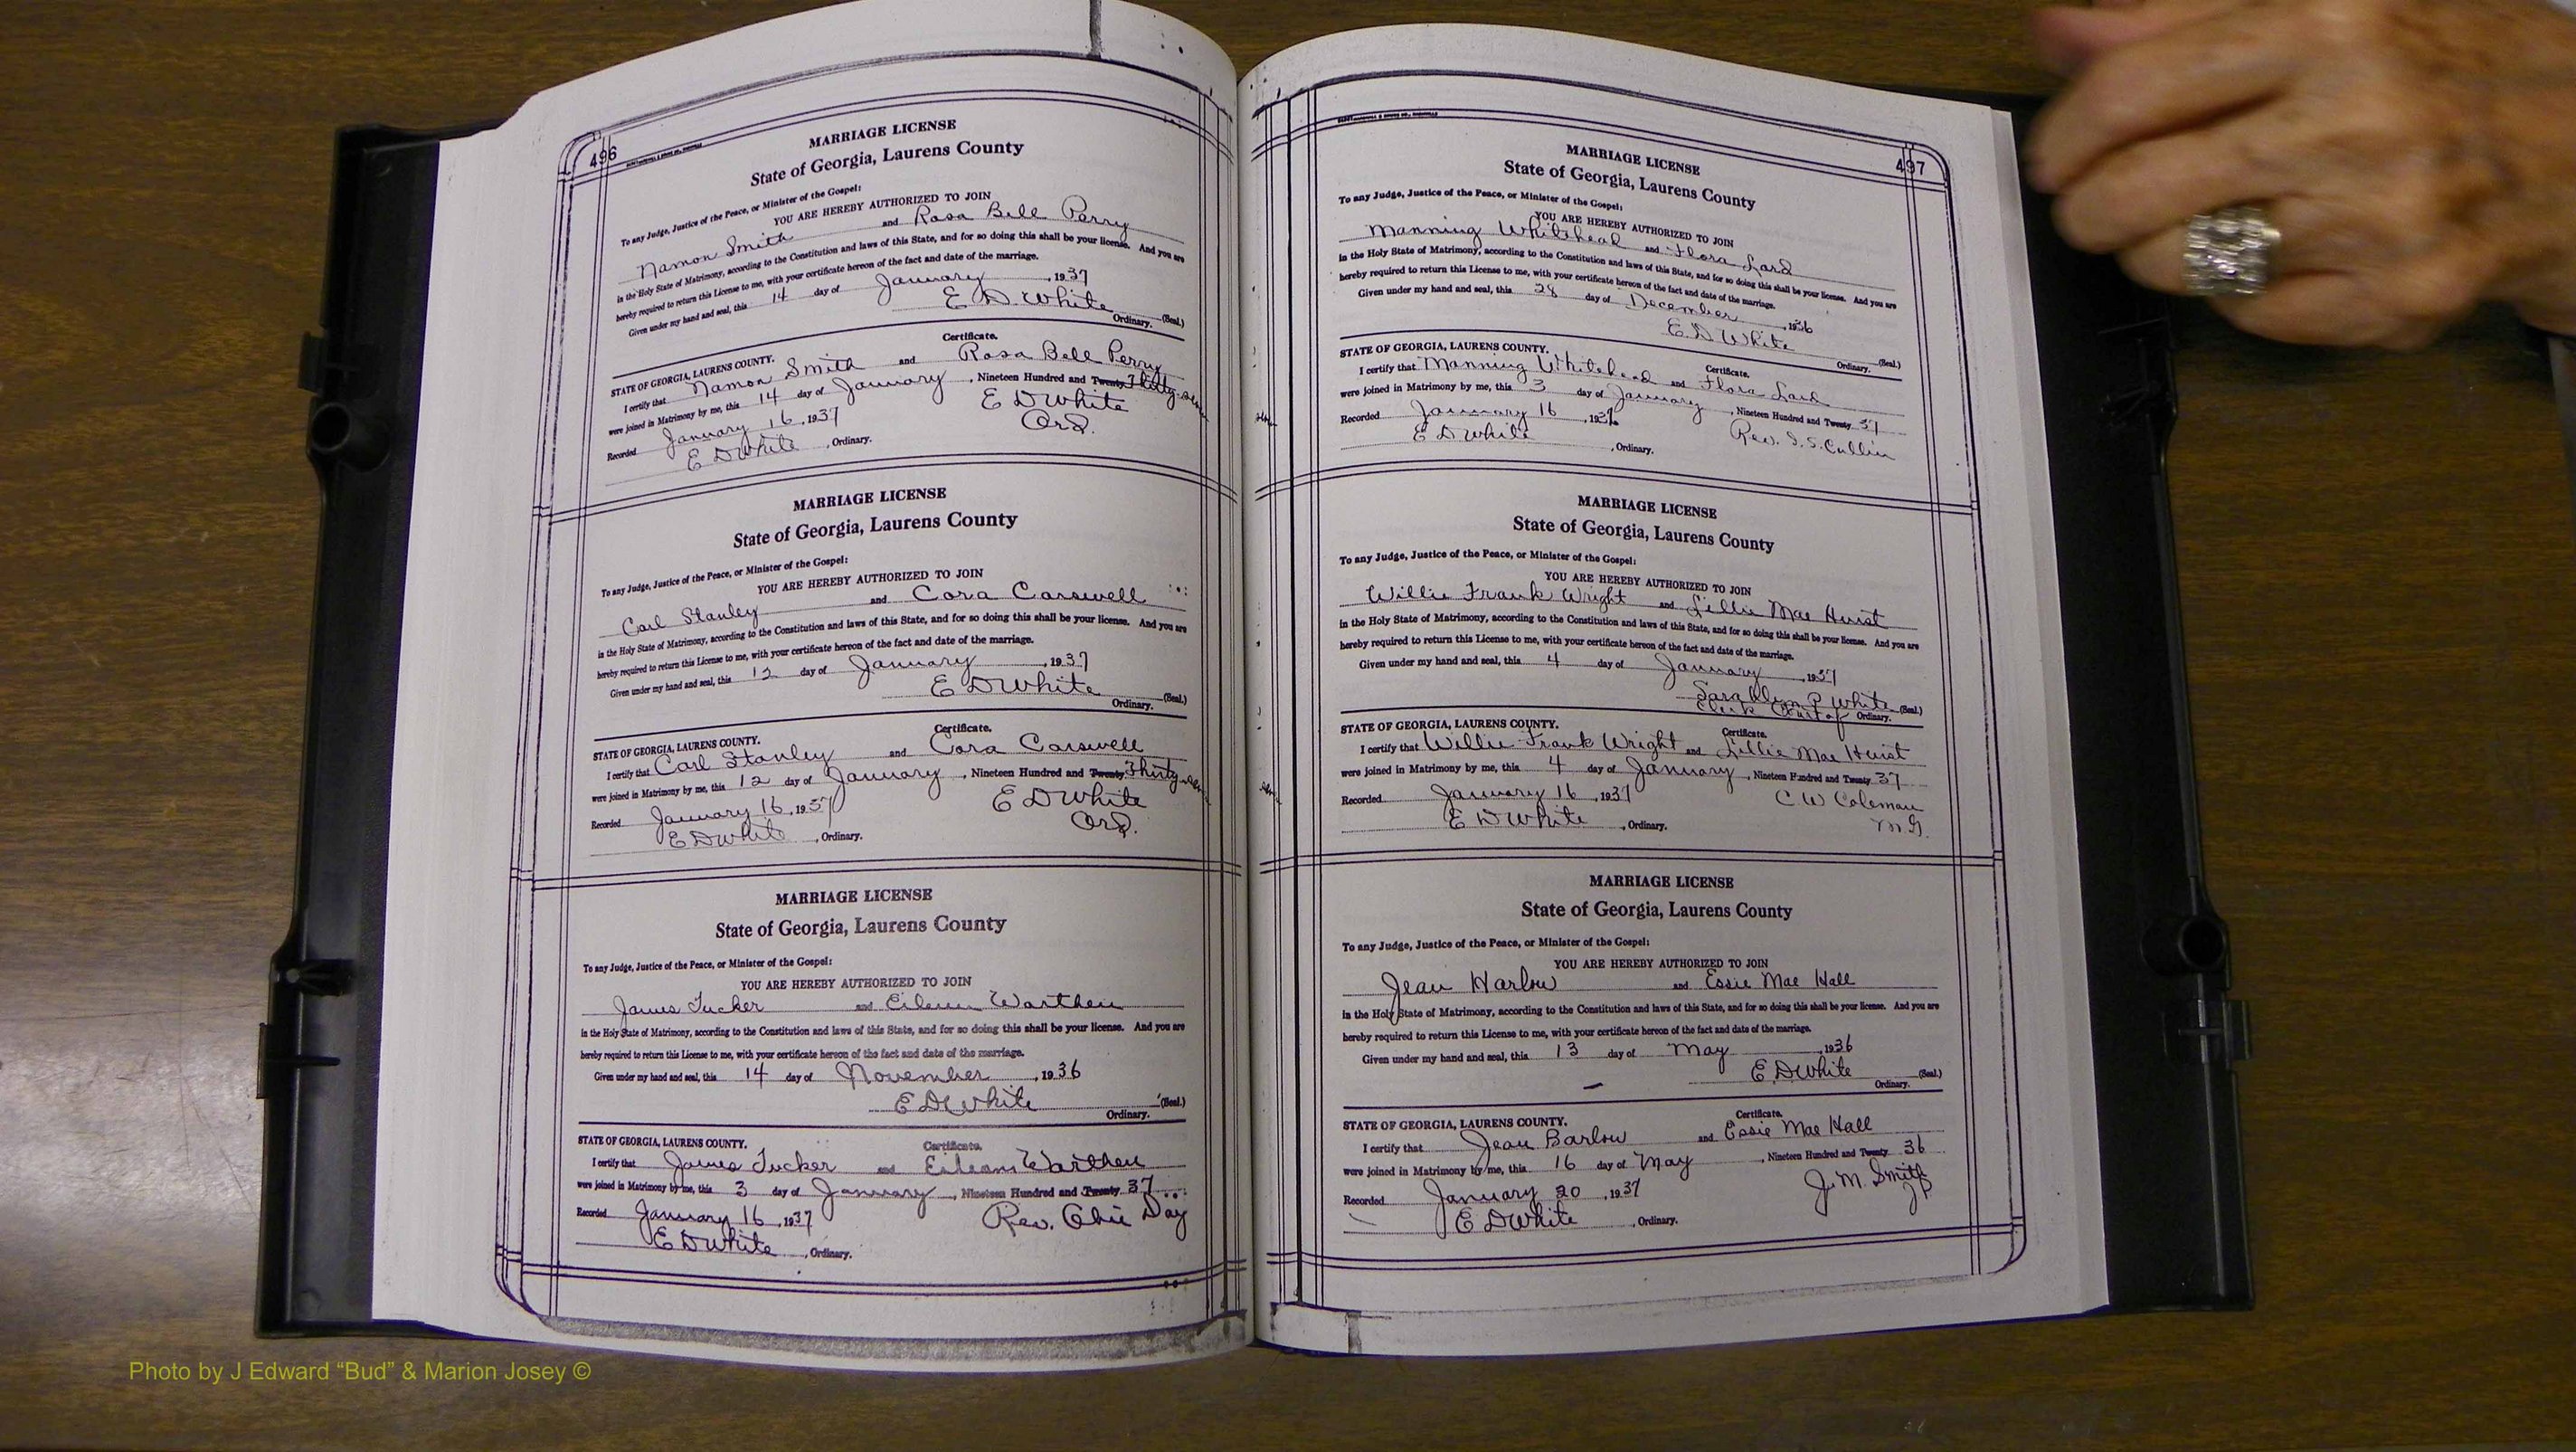 496
MARRIAGE LICENSE
State of Georgia, Laurens County
To any Judge, Justice of the Peace, or Minister of the Gospel:
YOU ARE HEREBY AUTHORIZED TO JOIN
Namon Smith and Rosa Bell Perry
in the Holy State of Matrimony, according to the Constitution and laws of this State, and for so doing this shall be your license. And you are
hereby required to return this License to me, with your certificate hereon of the fact and date of the marriage.
Given under my hand and seal, this 14 day of January, 1937
E D White (Seal.)
Ordinary.
Certificate.
STATE OF GEORGIA, LAURENS COUNTY.
I certify that Namon Smith and Rosa Bell Perry
were joined in Matrimony by me, this 14 day of January, Nineteen Hundred and Twenty Thirty-seven
Recorded January 16, 1937 E D White
E D White, Ordinary. Ord.
MARRIAGE LICENSE
State of Georgia, Laurens County
To any Judge, Justice of the Peace, or Minister of the Gospel:
YOU ARE HEREBY AUTHORIZED TO JOIN
Carl Stanley and Cora Carswell
in the Holy State of Matrimony, according to the Constitution and laws of this State, and for so doing this shall be your license. And you are
hereby required to return this License to me, with your certificate hereon of the fact and date of the marriage.
Given under my hand and seal, this 12 day of January, 1937
E D White (Seal.)
Ordinary.
Certificate.
STATE OF GEORGIA, LAURENS COUNTY.
I certify that Carl Stanley and Cora Carswell
were joined in Matrimony by me, this 12 day of January, Nineteen Hundred and Twenty Thirty-seven
Recorded January 16, 1937 E D White
E D White, Ordinary. Ord.
MARRIAGE LICENSE
State of Georgia, Laurens County
To any Judge, Justice of the Peace, or Minister of the Gospel:
YOU ARE HEREBY AUTHORIZED TO JOIN
James Tucker and Eileen Warthen
in the Holy State of Matrimony, according to the Constitution and laws of this State, and for so doing this shall be your license. And you are
hereby required to return this License to me, with your certificate hereon of the fact and date of the marriage.
Given under my hand and seal, this 14 day of November, 1936
E D White (Seal.)
Ordinary.
Certificate.
STATE OF GEORGIA, LAURENS COUNTY.
I certify that James Tucker and Warthen
were joined in Matrimony by me, this 3 day of January, Nineteen Hundred and Twenty 37
Recorded January 16, 1937 Rev. Day
E D White, Ordinary.
497
MARRIAGE LICENSE
State of Georgia, Laurens County
To any Judge, Justice of the Peace, or Minister of the Gospel:
YOU ARE HEREBY AUTHORIZED TO JOIN
Manning Whitehead and Flora Lard
in the Holy State of Matrimony, according to the Constitution and laws of this State, and for so doing this shall be your license. And you are
hereby required to return this License to me, with your certificate hereon of the fact and date of the marriage.
Given under my hand and seal, this 28 day of December, 1936
E D White (Seal.)
Ordinary.
Certificate.
STATE OF GEORGIA, LAURENS COUNTY.
I certify that Manning Whitehead and Flora Lard
were joined in Matrimony by me, this 3 day of January, Nineteen Hundred and Twenty 37
Recorded January 16, 1937 Rev.
E D White, Ordinary.
MARRIAGE LICENSE
State of Georgia, Laurens County
To any Judge, Justice of the Peace, or Minister of the Gospel:
YOU ARE HEREBY AUTHORIZED TO JOIN
Willie Frank Wright and Lillie Mae Hurst
in the Holy State of Matrimony, according to the Constitution and laws of this State, and for so doing this shall be your license. And you are
hereby required to return this License to me, with your certificate hereon of the fact and date of the marriage.
Given under my hand and seal, this 4 day of January, 1937
P White (Seal.)
Clerk Court of Ordinary.
Certificate.
STATE OF GEORGIA, LAURENS COUNTY.
I certify that Willie Frank Wright and Lillie Mae Hurst
were joined in Matrimony by me, this 4 day of January, Nineteen Hundred and Twenty 37
Recorded January 16, 1937 C W Coleman
E D White, Ordinary. M.G.
MARRIAGE LICENSE
State of Georgia, Laurens County
To any Judge, Justice of the Peace, or Minister of the Gospel:
YOU ARE HEREBY AUTHORIZED TO JOIN
Jean Harlow and Essie Mae Hall
in the Holy State of Matrimony, according to the Constitution and laws of this State, and for so doing this shall be your license. And you are
hereby required to return this License to me, with your certificate hereon of the fact and date of the marriage.
Given under my hand and seal, this 13 day of May, 1936
E. D White (Seal.)
Ordinary.
Certificate.
STATE OF GEORGIA, LAURENS COUNTY.
I certify that Jean Barlow and Essie Mae Hall
were joined in Matrimony by me, this 16 day of May, Nineteen Hundred and Twenty 36
Recorded January 20, 1937 J. M. Smith
E D White, Ordinary. JP
Photo by J Edward “Bud” & Marion Josey ©